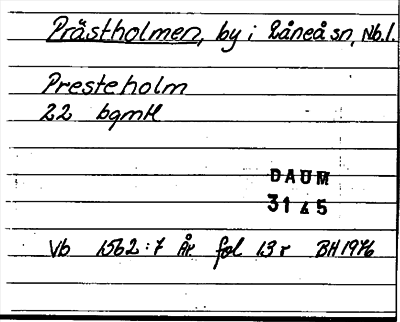 Prästholmen, by i Råneå sn, Nb.l.
Presteholm
22 bgmH
DAUM
31 & 5
Vb 1562:7 År fol 13 r BH 1976